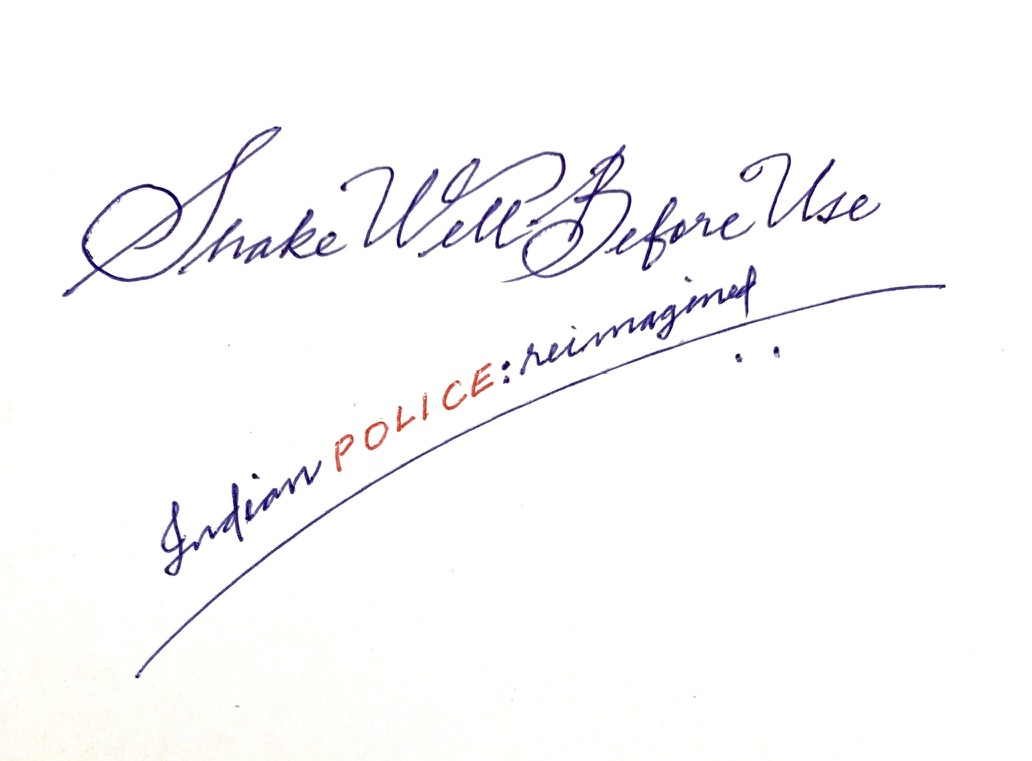 Shake Well Before Use
Indian POLICE: reimagined